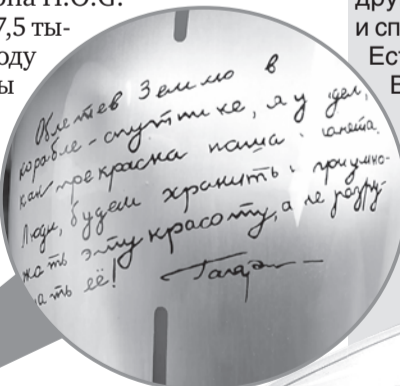 7,5 ты-
оду
ы
дру
и сп
Ест
Облетев Землю в
корабле-спутнике, я у дел,
как прекрасна наша ланета.
Люди, будем хранить и приумно-
жать эту красоту, а не разру-
ать её! Гагарин